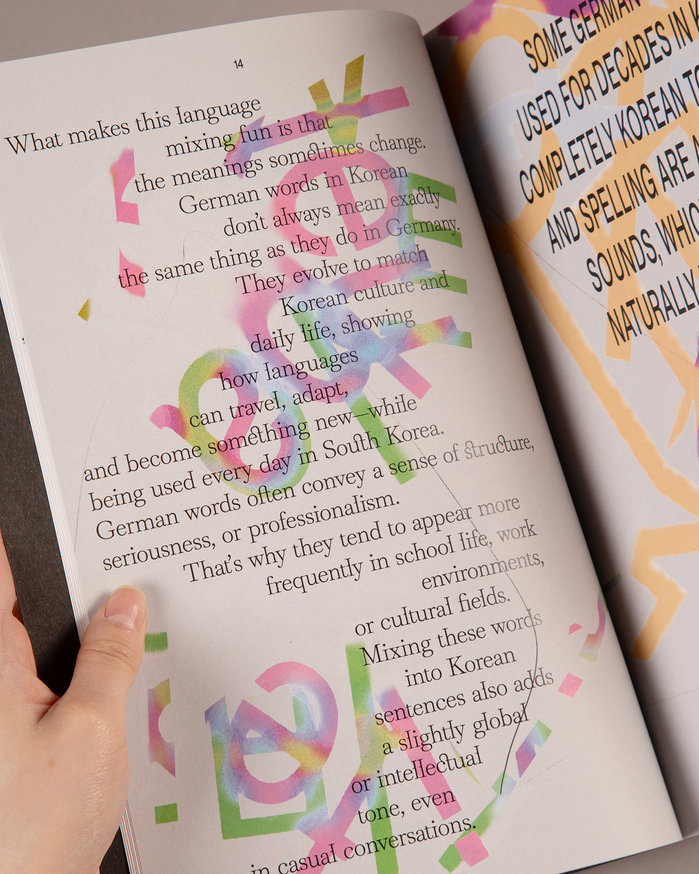 14
What makes this language
mixing fun is that
the meanings sometimes change.
German words in Korean
don't always mean exactly
the same thing as they do in Germany.
They evolve to match
Korean culture and
daily life, showing
how languages
can travel, adapt,
and become something new—while
being used every day in South Korea.
German words often convey a sense of structure,
seriousness, or professionalism.
That's why they tend to appear more
frequently in school life, work
environments,
or cultural fields.
Mixing these words
into Korean
sentences also adds
a slightly global
or intellectual
tone, even
in casual conversations.
SOME GERMAN
USED FOR DECADES IN
COMPLETELY KOREAN TO
AND SPELLING ARE
SOUNDS,
NATURALLY